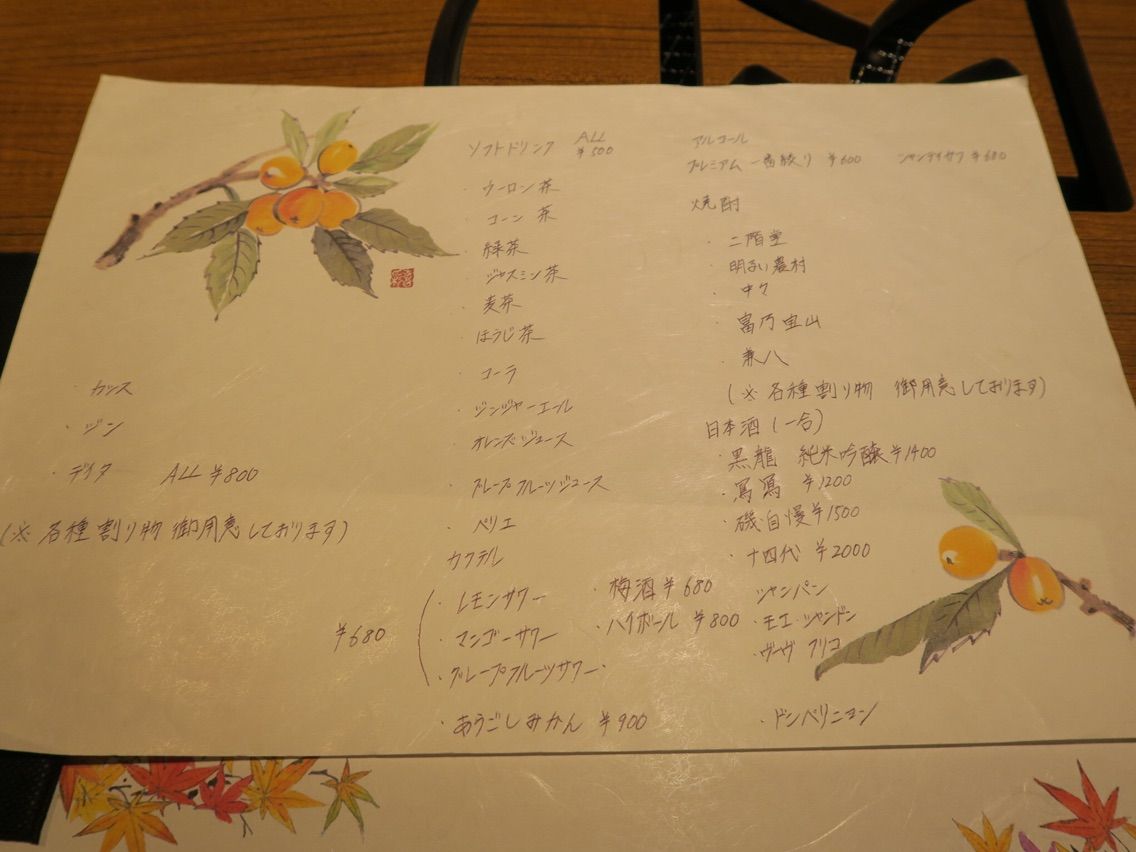 ソフトドリンク ALL ¥500
・ウーロン茶
・コーン茶
・緑茶
・ジャスミン茶
・麦茶
・ほうじ茶
・コーラ
・ジンジャーエール
・オレンジジュース
・グレープフルーツジュース
・ペリエ
カクテル
・レモンサワー
・マンゴーサワー
・グレープフルーツサワー
¥680
・あらごしみかん ¥900
・梅酒 ¥680
・ハイボール ¥800
・カシス
・ジン
・デイタ ALL ¥800
(※各種割り物 御用意しております)
アルコール
プレミアム一番絞り ¥600 シャンデイガフ ¥680
焼酎
・二階堂
・明るい農村
・中々
・富乃宝山
・兼八
(※各種割り物 御用意しております)
日本酒(一合)
・黒龍 純米吟醸 ¥1400
¥1200
・磯自慢 ¥1500
・十四代 ¥2000
シャンパン
・モエ・シャンドン
・ヴーヴ クリコ
・ドンペリニヨン